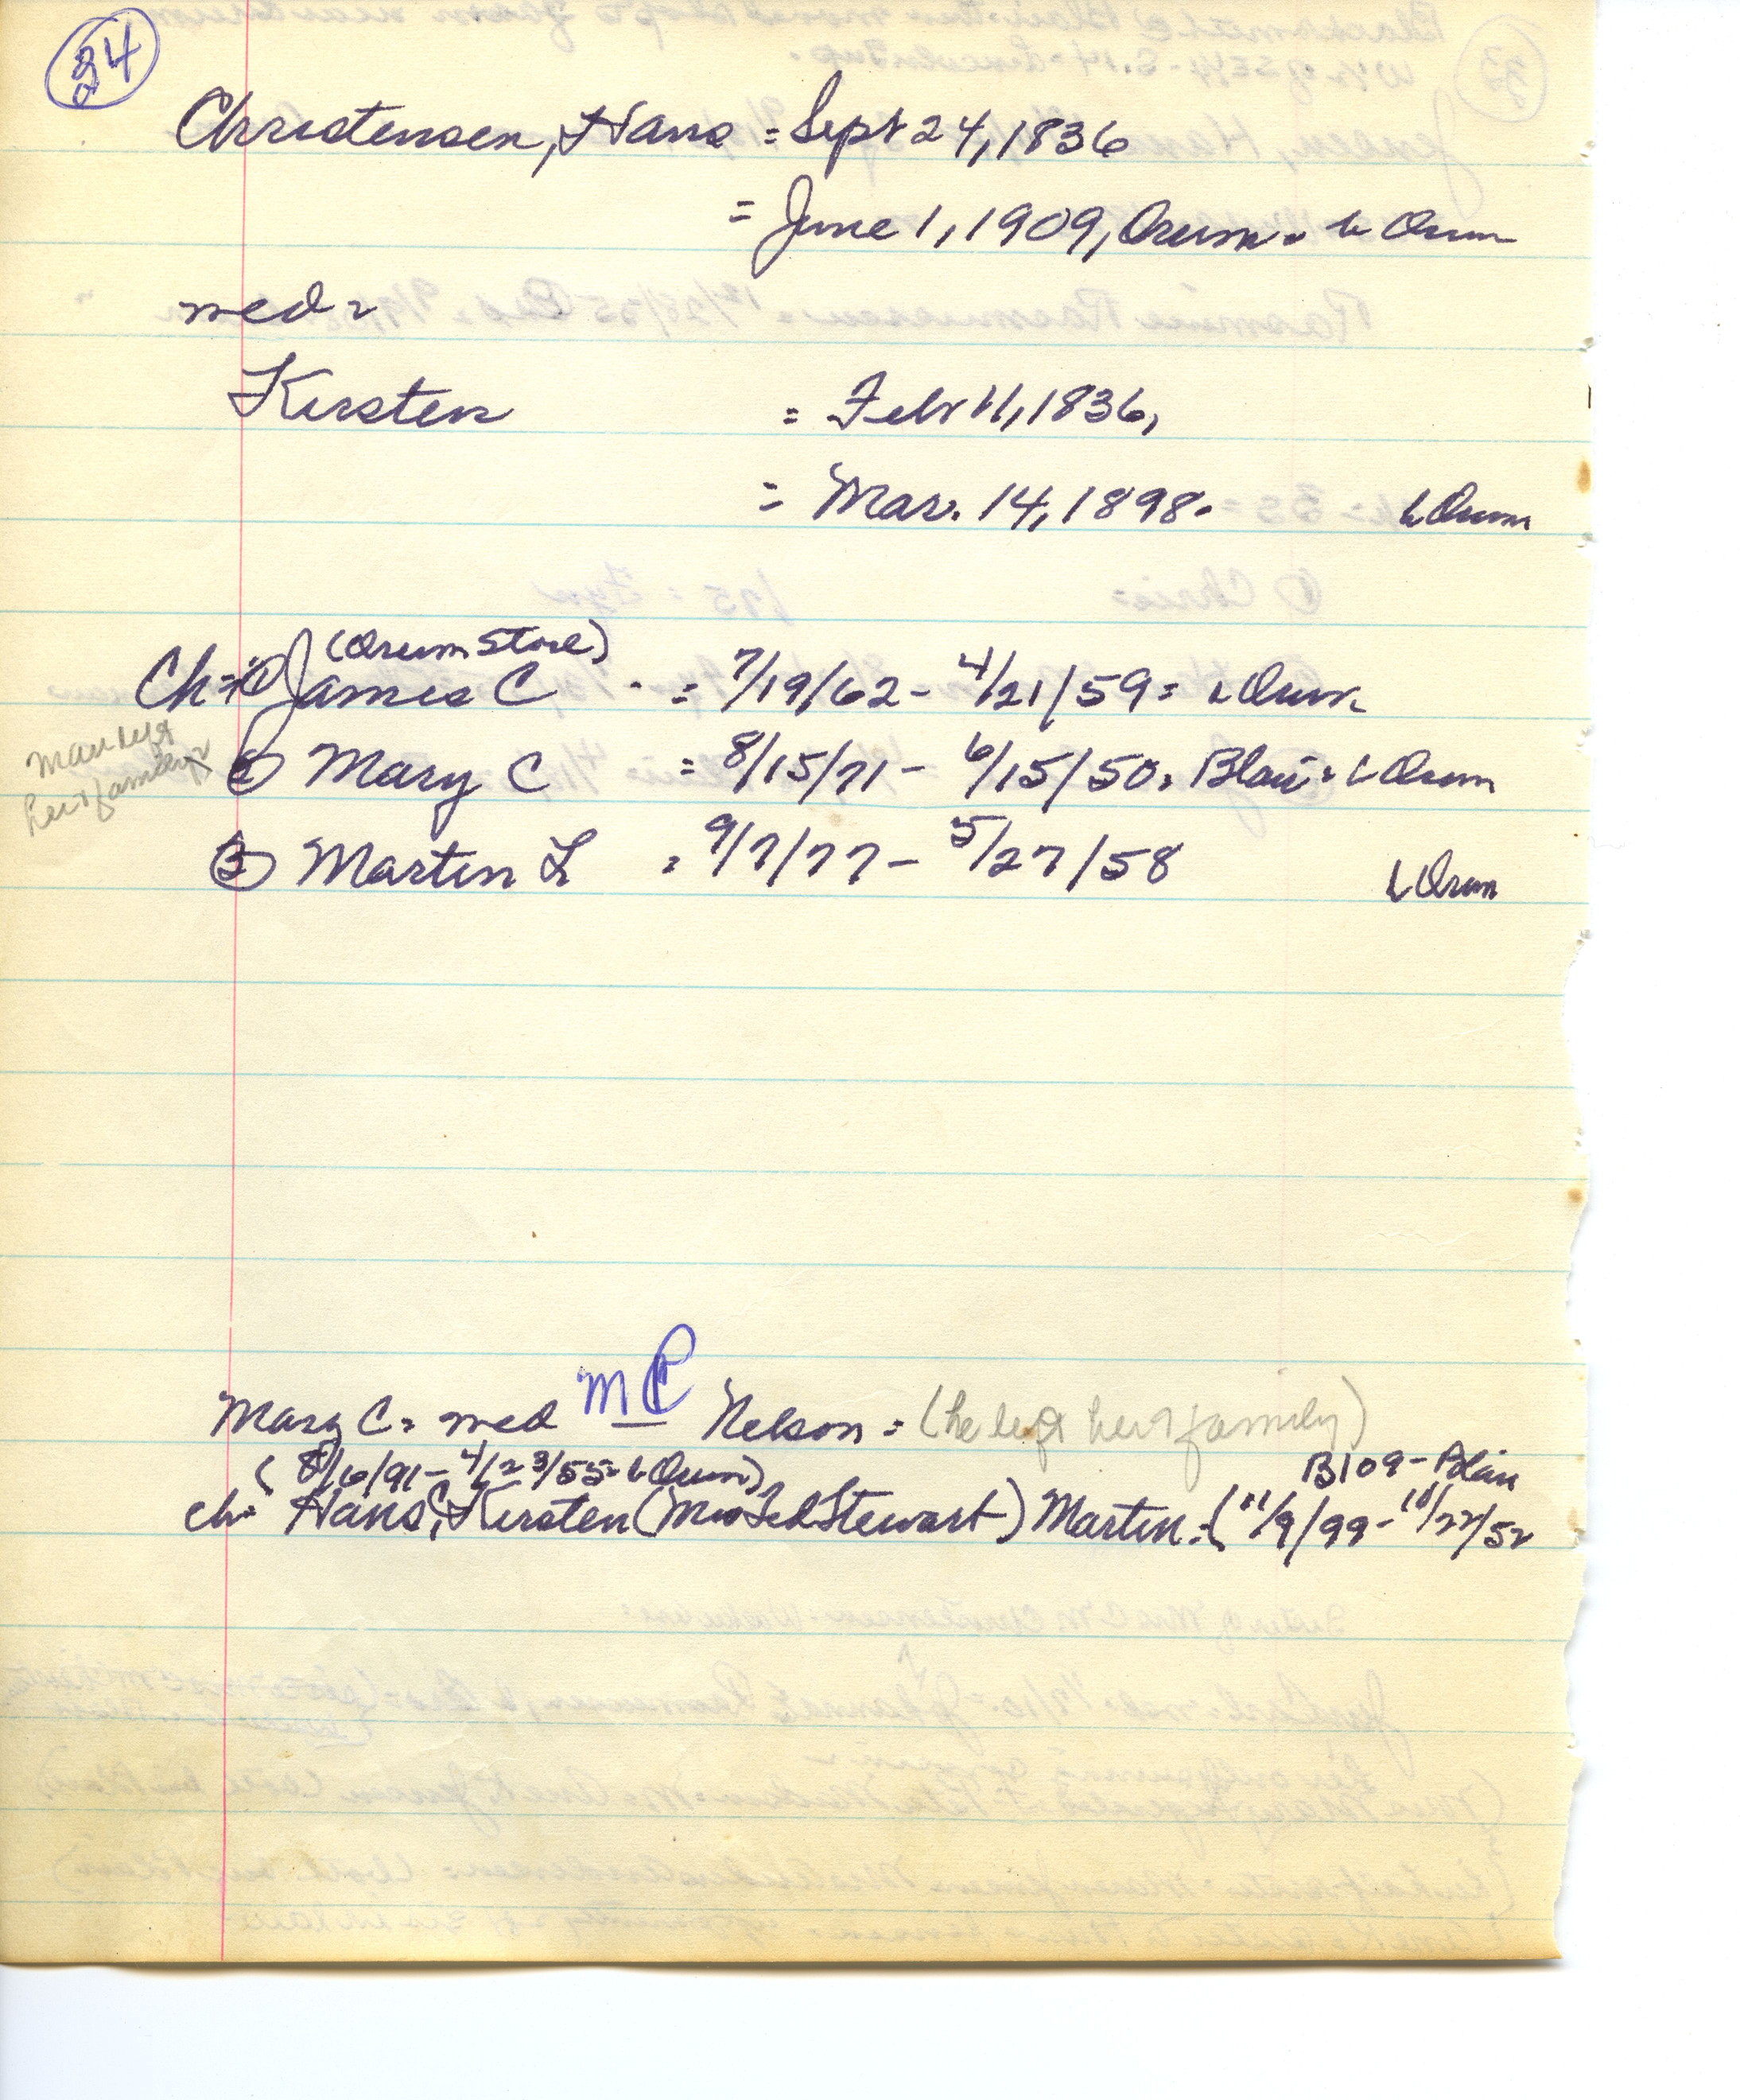 34
Christensen, Hans = Sept 24, 1836
= June 1, 1909, Orum. b Orum
med =
Kirsten = Feb 11, 1836,
= Mar. 14, 1898. b Orum
(Orum Store)
Ch = ① James C . = 7/19/62 - 4/21/59 = b Orum
② Mary C = 8/15/71 - 6/15/50, Blair = b Orum
man left
her & family
③ Martin L = 9/7/77 - 5/27/58 b Orum
Mary C = med M P Nelson = (he left her & family)
(8/6/91 - 4/23/55 = b Orum) B109 - Blair
ch = Hans, Kirsten (Mrs Ted Stewart) Martin = (11/9/99 - 10/22/52